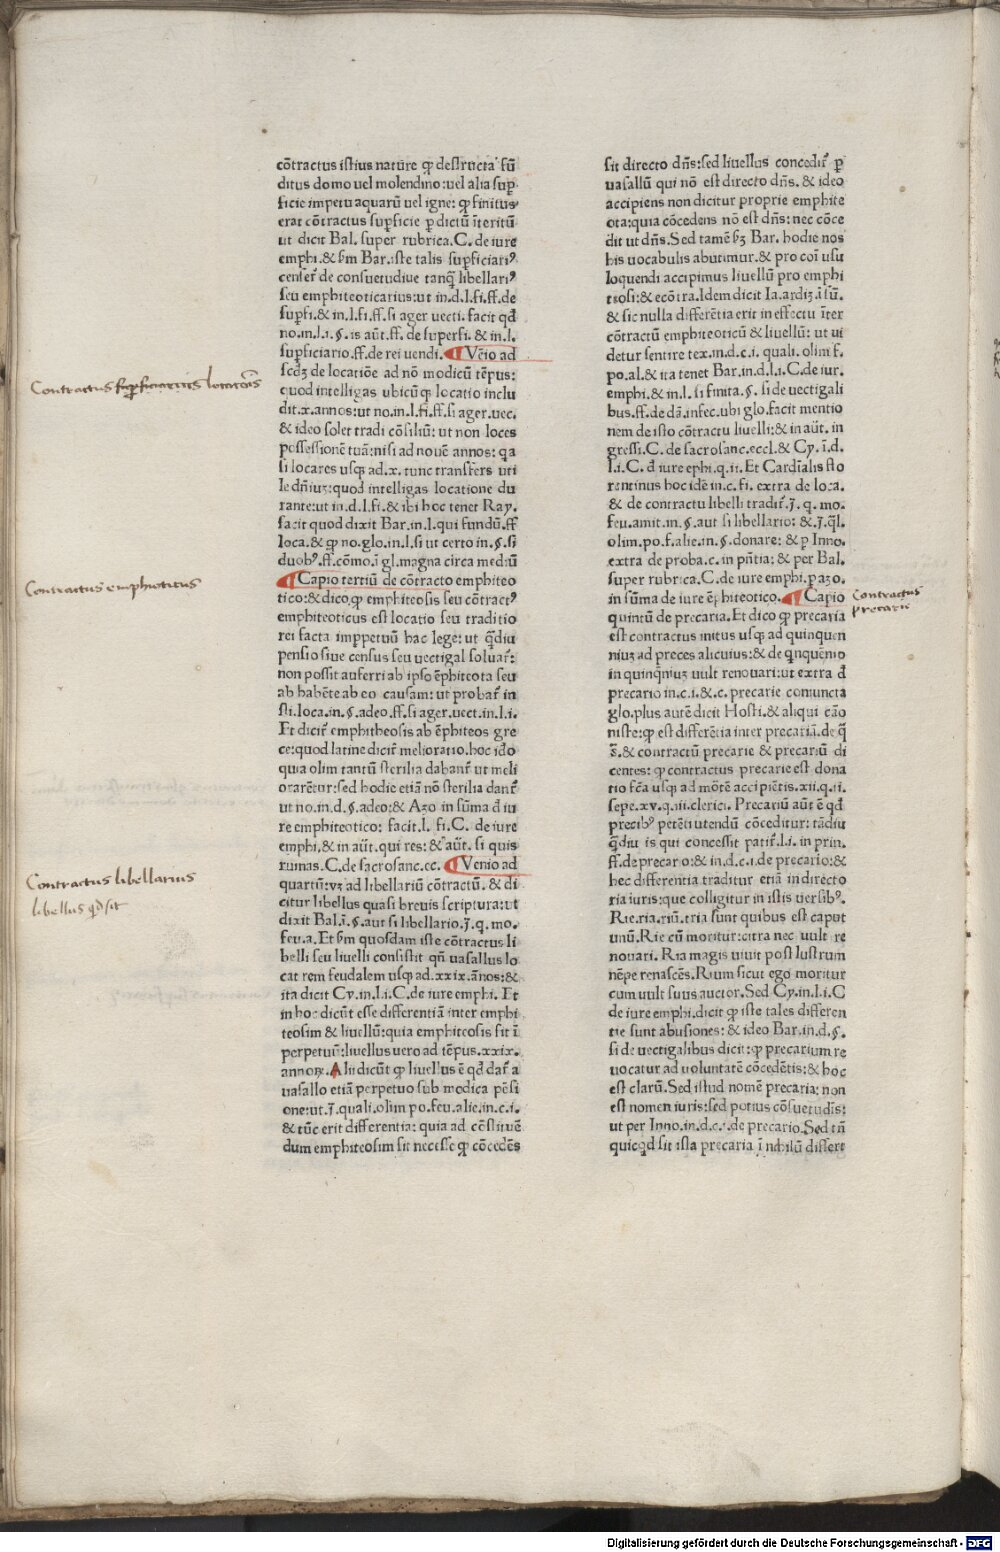 cōtractus istius nature ꝙ destructa fū
ditus domo uel molendino: uel alia suꝑ
ficie impetu aquarū uel igne: ꝙ finitus
erat cōtractus suꝑficie ꝑ dictū īteritū
ut dicit Bal. super rubrica. C. de iure
emphi. & ẜm Bar. iste talis suꝑficiariꝰ
censet̄ de consuetudiue tanꝗ libellariꝰ
seu emphiteoticarius: ut in. d. l. fi. ff. de
suꝑfi. & in. l. fi. ff. si ager uecti. facit qd̄
no. in. l. i. §. is aūt. ff. de superfi. & in. l.
suꝑficiario. ff. de rei uendi. ¶ Vēio ad
scd̄ꝫ de locatiōe ad nō modicū tēpus:
quod intelligas ubicūꝙ locatio inclu
dit. x. annos: ut no. in. l. fi. ff. si ager. uec.
& ideo solet tradi cōsiliū: ut non loces
possessionē tuā: nisi ad nouē annos: ꝗa
si locares usꝙ ad. x. tunc transfers uti
le dn̄iuꝫ: quod intelligas locatione du
rante: ut in. d. l. fi. & ibi hoc tenet Ray.
facit quod dixit Bar. in. l. qui fundū. ff
loca. & ꝙ no. glo. in. l. si ut certo in. §. si
duobꝰ. ff. cōmo. ī gl. magna circa mediū
¶ Capio tertiū de cōtracto emphiteo
tico: & dico, ꝙ emphiteosis seu cōtractꝰ
emphiteoticus est locatio seu traditio
rei facta imꝑpetuū hac lege: ut ꝗ̄diu
pensio siue census seu uectigal soluat̄:
non possit auferri ab ipso ēphiteota seu
ab habēte ab eo causam: ut probat̄ in
sti. loca. in. §. adeo. ff. si ager. uect. in. l. i.
Et dicit̄ emphitheosis ab ēphiteos gre
ce: quod latine dicit̄ melioratio. hoc ido
quia olim tantū sterilia dabant̄ ut meli
orarētur: sed hodie etiā nō sterilia dant̄
ut no. in. d. §. adeo: & Azo in sūma d̄ iu
re emphiteotico: facit. l. fi. C. de iure
emphi. & in aūt. qui res: & aūt. si quis
ruinas. C. de sacrosanc. ec. ¶ Venio ad
quartū: uꝫ ad libellariū cōtractū. & di
citur libellus quasi breuis scriptura: ut
dixit Bal. ī. §. aut si libellario. J. q. mo.
feu. a. Et ẜm quosdam iste cōtractus li
belli seu liuelli consistit qn̄ uasallus lo
cat rem feudalem usꝙ ad. xxix. ānos: &
ita dicit Cy. in. l. i. C. de iure emphi. Et
in hoc dicūt esse differentiā inter emphi
teosim & liuellū: quia emphiteosis fit ī
perpetuū: liuellus uero ad tēpus. xxix.
annoꝝ. Alii dicūt ꝙ liuellus ē qd̄ dat̄ a
uasallo etiā perpetuo sub modica pēsi
one: ut. J. quali. olim po. feu. alie. in. c. i.
& tūc erit differentia: quia ad cēstituē
dum emphiteosim sit necesse ꝙ cōcedēs
sit directo dn̄s: sed liuellus concedit̄ ꝑ
uasallū qui nō est directo dn̄s. & ideo
accipiens non dicitur proprie emphite
ota: quia cōcedens nō est dn̄s: nec cōce
dit ut dn̄s. Sed tamē ẜꝫ Bar. hodie nos
his uocabulis abutimur. & pro coī usu
loquendi accipimus liuellū pro emphi
teosi: & ecōtra. Idem dicit Ia. ardiꝫ. ī sū.
& sic nulla differētia erit in effectu īter
cōtractū emphiteoticū & liuellū: ut ui
detur sentire tex. in. d. c. i. quali. olim f.
po. al. & ita tenet Bar. in. d. l. i. C. de iur.
emphi. & in. l. si finita. §. si de uectigali
bus. ff. de dā. infec. ubi glo. facit mentio
nem de isto cōtractu liuelli: & in aūt. in
gressi. C. de sacrosanc. eccl. & Cy. ī. d.
l. i. C. d̄ iure ephi. q. ii. Et Cardīalis flo
rentinus hoc idē in. c. fi. extra de loca.
& de contractu libelli tradit̄. J. q. mo.
feu. amit. in. §. aut si libellario: & J. q̄l.
olim. po. f. alie. in. §. donare: & ꝑ Inno.
extra de proba. c. in pn̄tia: & per Bal.
super rubrica. C. de iure emphi. ꝑ azo.
in sūma de iure ēphiteotico. ¶ Capio
quintū de precaria. Et dico ꝙ precaria
est contractus initus usꝙ ad quinquen
niuꝫ ad preces alicuius: & de ꝗnquēnio
in quinq̄niuꝫ uult renouari: ut extra d̄
precario in. c. i. & c. precarie coniuncta
glo. plus autē dicit Hosti. & aliqui cāo
niste: ꝙ est differētia inter precariā. de ꝗ̄
s̄. & contractū precarie & precariū di
centes: ꝙ contractus precarie est dona
tio fc̄a usꝙ ad mōtē accipiētis. xii. q. ii.
sepe. xv. q. iii. clerici. Precariū aūt ē qd̄
precibꝰ petēti utendū cōceditur: tādiu
ꝗ̄diu is qui concessit patit̄. l. i. in prin.
ff. de precario: & in. d. c. i. de precario: &
hec differentia traditur etiā in directo
ria iuris: que colligitur in istis uersibꝰ.
Rie. ria. riū. tria sunt quibus est caput
unū. Rie cū moritur: citra nec uult re
nouari. Ria magis uiuit post lustrum
nēpe renascēs. Rium sicut ego moritur
cum uult suus auctor. Sed Cy. in. l. i. C
de iure emphi. dicit ꝙ iste tales differen
tie sunt abusiones: & ideo Bar. in. d. §.
si de uectigalibus dicit: ꝙ precarium re
uocatur ad uoluntatē cōcedētis: & hoc
est clarū. Sed istud nomē precaria: non
est nomen iuris: sed potius cōsuetudīs:
ut per Inno. in. d. c. i. de precario. Sed tn̄
quicꝗd sit ista precaria ī nihilū differt
Contractus locatōis
Contractus emphioticus
Contractus libellarius
libellus qd sit
Contractus
precarie
Digitalisierung gefördert durch die Deutsche Forschungsgemeinschaft - DFG